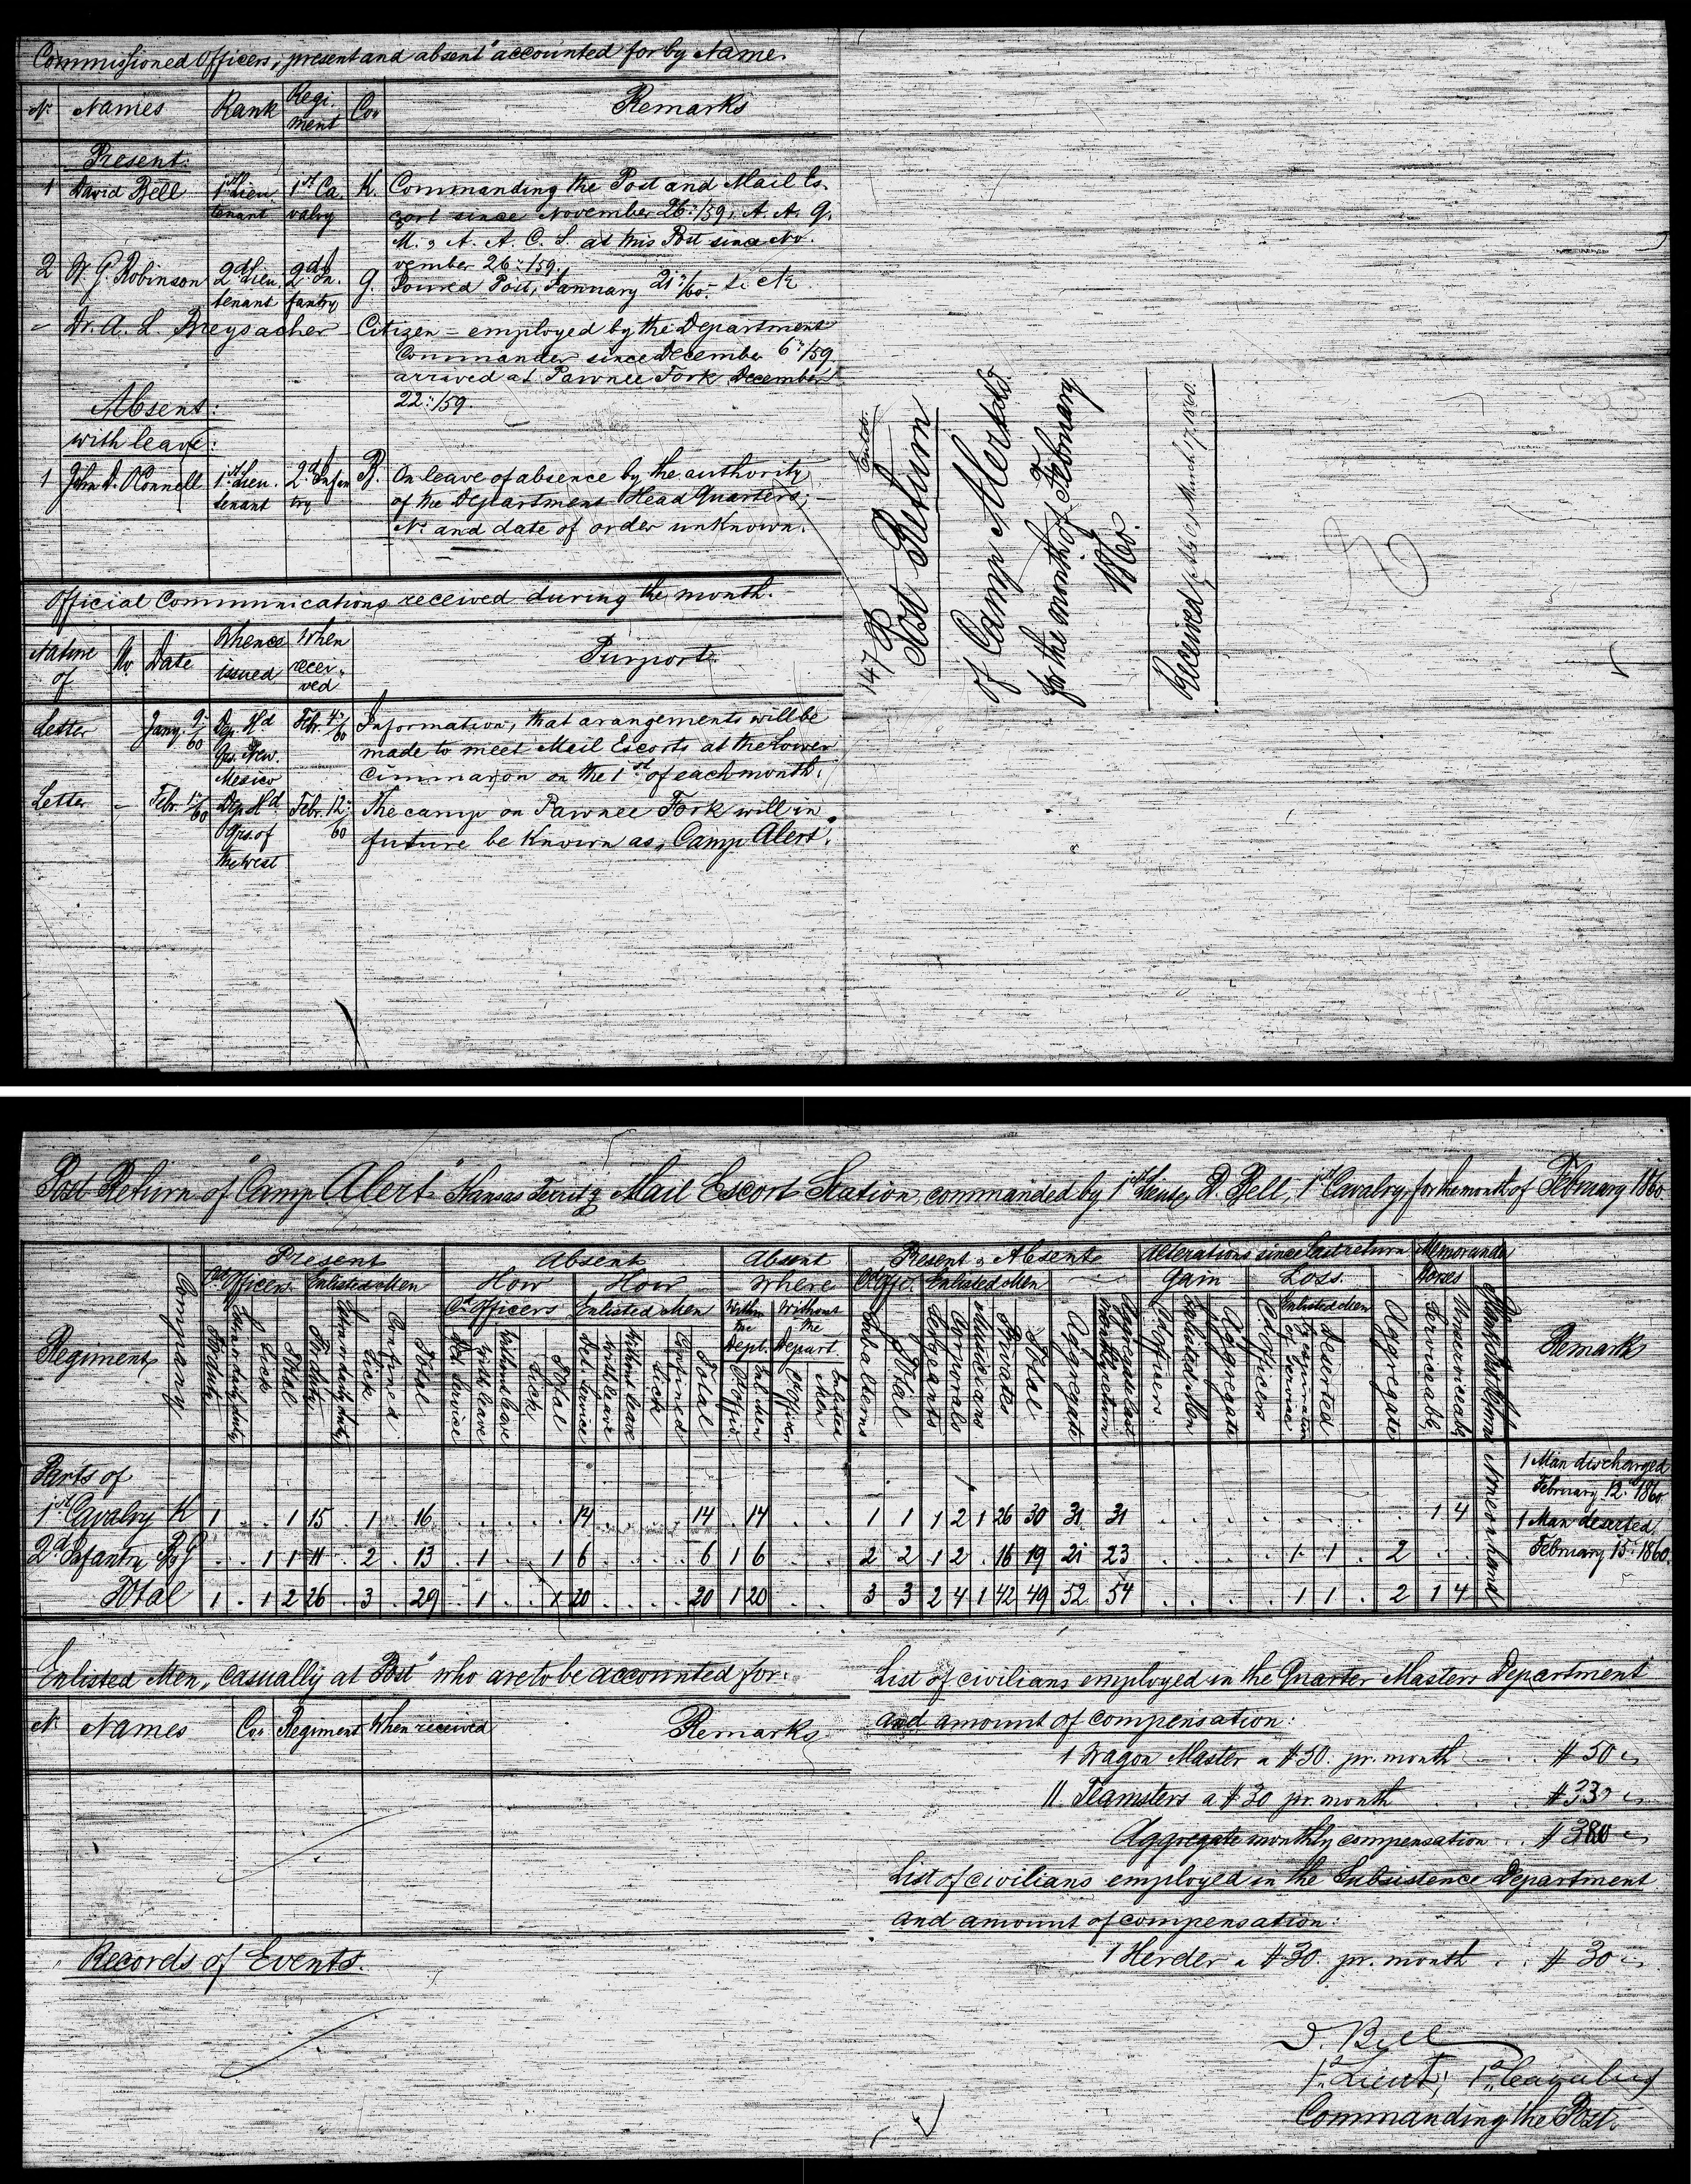 Commissioned Officers, "present and absent" accounted for by Name.
No. Names Rank Regi- ment Co. Remarks
Present:
1 David Bell 1st Lieu- tenant 1st Ca- valry K. Commanding the Post and Mail Es-
cort since November 26:/59, A. A. Q.
M. & A. A. C. S. at this Post since No-
vember 26:/59.
2 W. G. Robinson 2d Lieu- tenant 2d In- fantry G. Joined Post, January 21:/60. Sick
" Dr. A. L. Breysacher Citizen - employed by the Department
Commander since December 6:/59
arrived at Pawnee Fork December
22:/59.
Absent:
with leave:
1 John D. O'Connell 1st Lieu- tenant 2d Infan- try B. On leave of absence by the authority
of the Department Head Quarters, -
No. and date of order unknown.
Official Communications received during the month.
Nature of No. Date Whence issued When recei- ved Purport.
Letter - Jany. 9:/60 Dep. Hd Qrs. New- Mexico Febr. 4:/60 Information, that arangements will be
made to meet Mail Escorts at the Lower
Cimmaron on the 1st of each month.
Letter - Febr. 1:/60 Dep. Hd Qrs. of the West Febr. 12:/60 The camp on Pawnee Fork will in
future be known as "Camp Alert".
147
Post Return
of Camp Alert
for the month of February
1860.
Received March 17, 1860.
Post Return of "Camp Alert" Kansas Territy Mail Escort Station, commanded by 1st Lieut. D. Bell, 1st Cavalry, for the month of February 1860
Present Absent Absent Present & Absent Alterations since last return Memoranda
Officers Enlisted Men How How Where Enlisted Men Gain Loss Horses
Cd Officers Enlisted Men Within the Dept. Without the Depart. Enlisted Men
Regiments Company For duty Sick Total For duty Sick Confined Total Det. Service With leave Without leave Sick Total Det. Service With leave Without leave Sick Confined Total Subalterns Total Sergeants Corporals Musicians Privates Total Aggregate Aggregate last monthly return Officers Enlisted Men Aggregate Cd Officers Deserted Aggregate Serviceable Unserviceable Remarks
Parts of
1st Cavalry K 1 . . 1 15 . 1 . 16 . . . . . 14 . . . . 14 . 14 . . 1 1 1 2 1 26 30 31 31 . . . . . . . 1 4
2d Infantry B&G . . 1 1 11 . 2 . 13 . 1 . . 1 6 . . . . 6 1 6 . . 2 2 1 2 . 16 19 21 23 . . . . 1 1 . 2 . .
Total 1 . 1 2 26 . 3 . 29 . 1 . . 1 20 . . . . 20 1 20 . . 3 3 2 4 1 42 49 52 54 . . . . 1 1 . 2 1 4
None on hand
1 Man discharged
February 12: 1860.
1 Man deserted
February 15: 1860.
Enlisted Men, "casually at Post" who are to be accounted for:
No. Names Co. Regiment When received Remarks
Records of Events.
List of civilians employed in the Quarter Masters Department
and amount of compensation:
1 Wagon Master a $50. pr. month . . . $50
11 Teamsters a $30 pr. month . . . $330
Aggregate monthly compensation . . $380
List of civilians employed in the Subsistence Department
and amount of compensation:
1 Herder a $30. pr. month . . . $30
D. Bell
1st Lieut, 1st Cavalry
Commanding the Post.